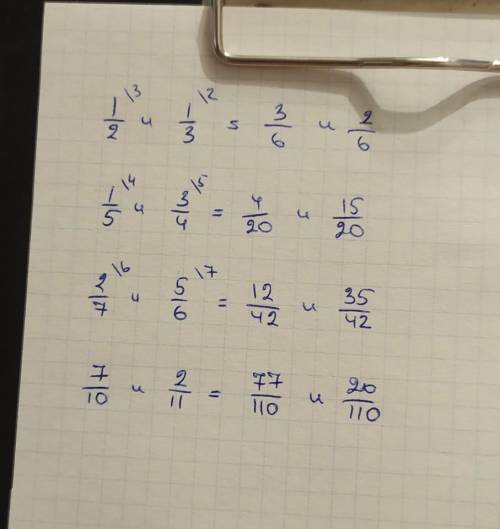 1/2 \3 и 1/3 \2 = 3/6 и 2/6
1/5 \4 и 3/4 \5 = 4/20 и 15/20
2/7 \6 и 5/6 \7 = 12/42 и 35/42
7/10 и 2/11 = 77/110 и 20/110